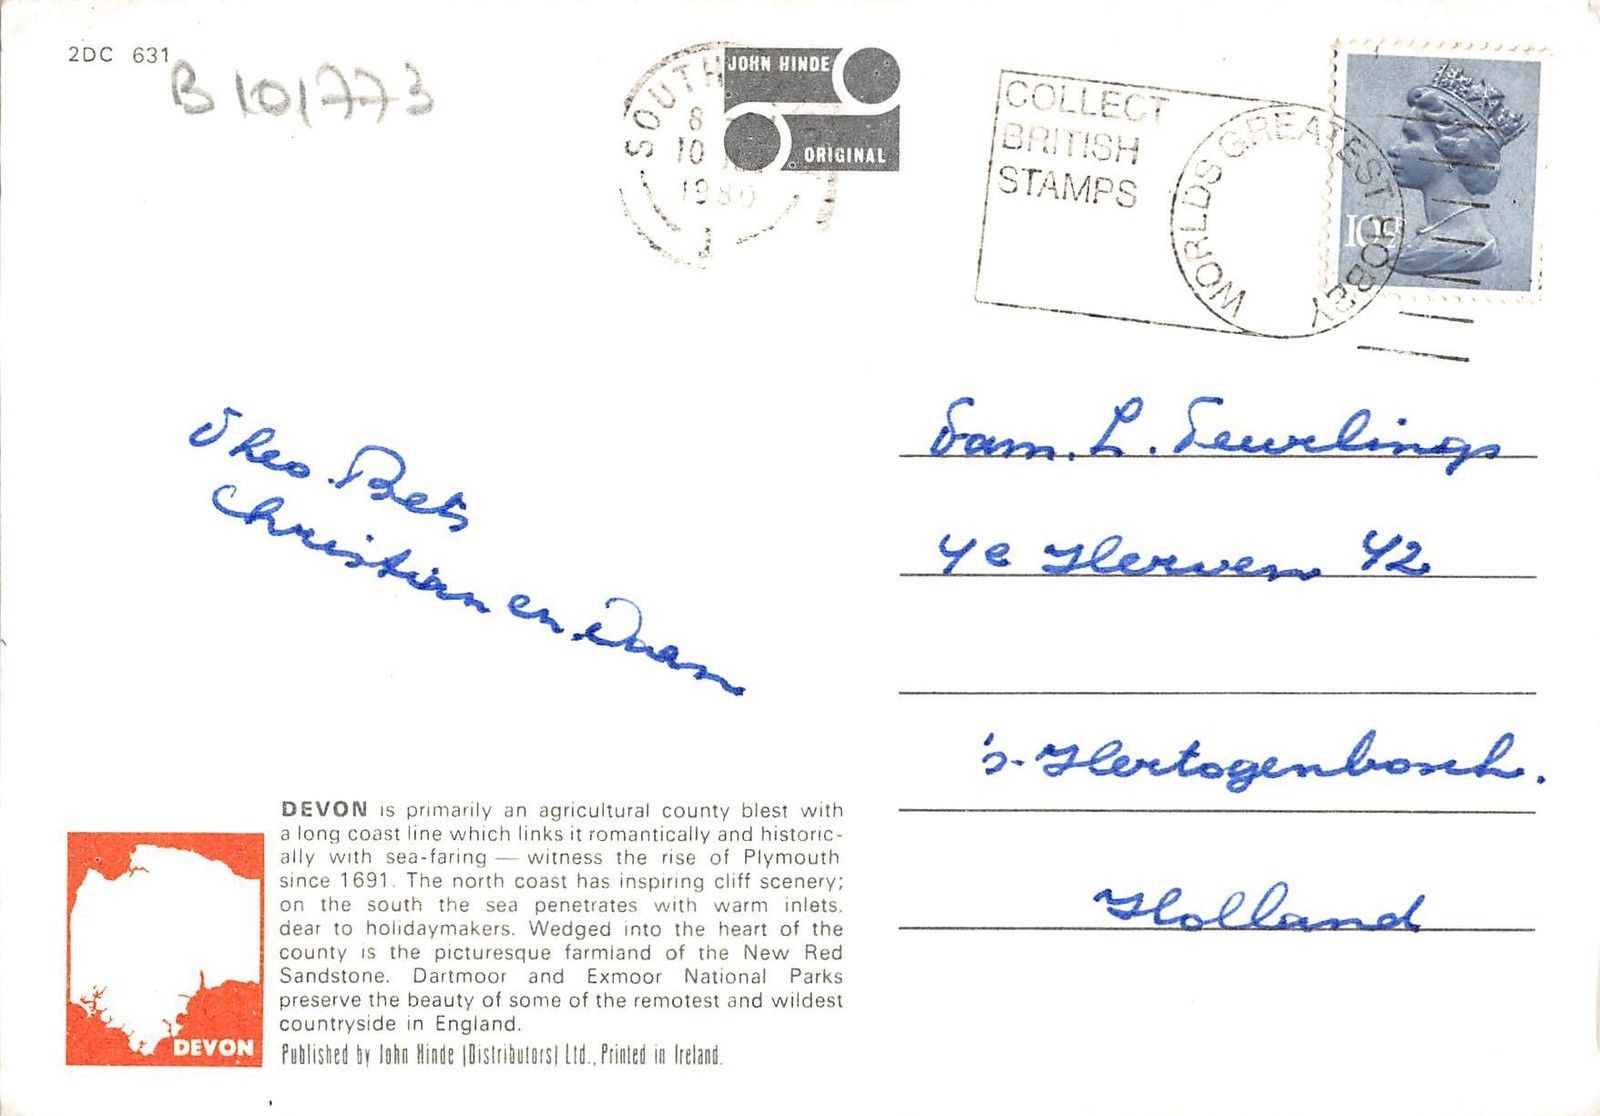 2DC 631
B 101773
SOUTH
8
10
1980
JOHN HINDE
ORIGINAL
COLLECT
BRITISH
STAMPS
WORLDS GREATEST HOBBY
Theo. Bets
Christian en Daan
Fam. L. Teurlings
4e Herven 42
's-Hertogenbosch.
Holland
DEVON is primarily an agricultural county blest with
a long coast line which links it romantically and historic-
ally with sea-faring — witness the rise of Plymouth
since 1691. The north coast has inspiring cliff scenery;
on the south the sea penetrates with warm inlets,
dear to holidaymakers. Wedged into the heart of the
county is the picturesque farmland of the New Red
Sandstone. Dartmoor and Exmoor National Parks
preserve the beauty of some of the remotest and wildest
countryside in England.
Published by John Hinde (Distributors) Ltd., Printed in Ireland.
DEVON